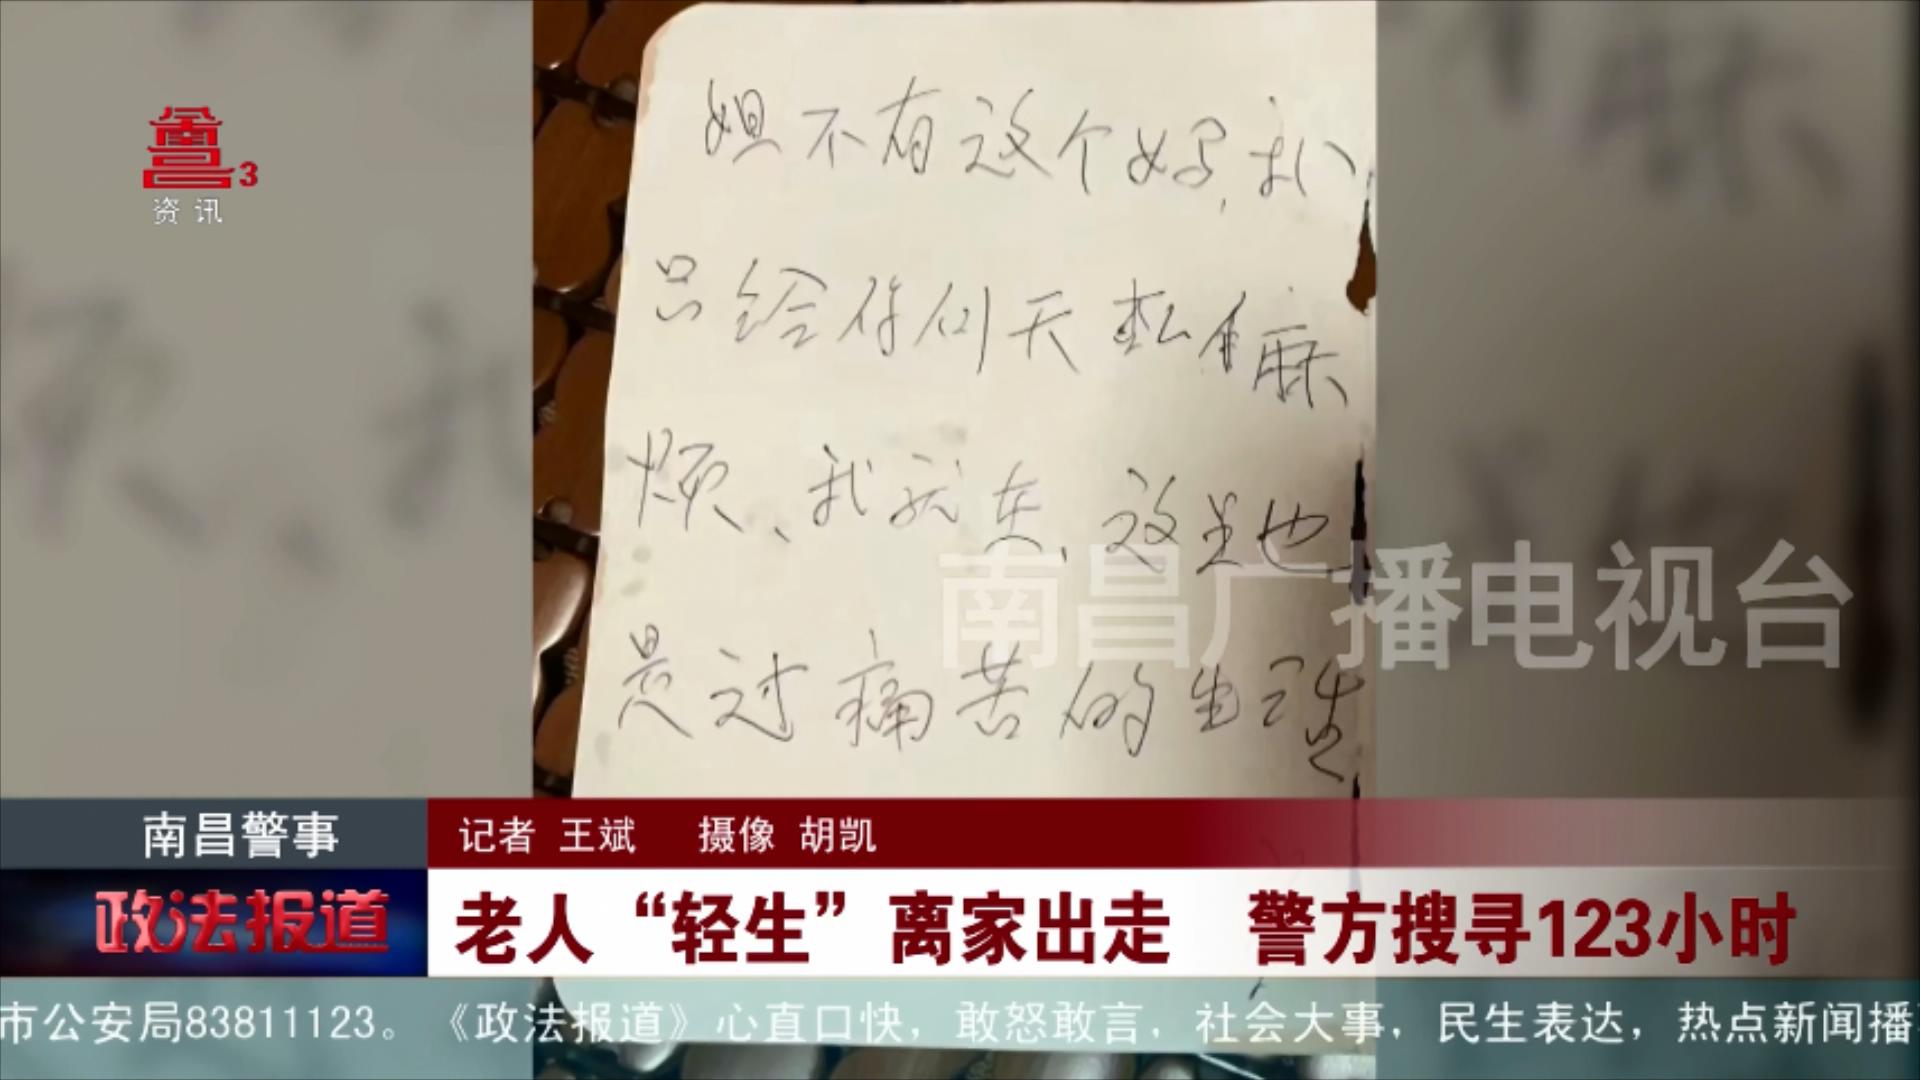 3
资讯
不有这个好,
只给你们天
麻
烦、我就 这
也
是过痛苦的生活
南昌广播电视台
南昌警事
记者 王斌 摄像 胡凯
政法报道
老人“轻生”离家出走 警方搜寻123小时
市公安局83811123。《政法报道》心直口快，敢怒敢言，社会大事，民生表达，热点新闻播